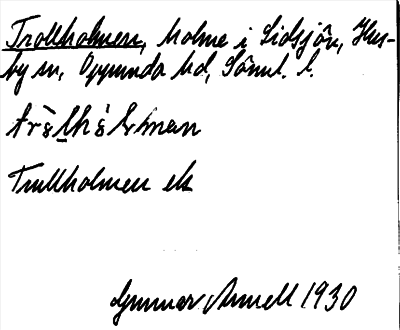 Trollholmen, holme i Lidsjön, Hus-
by sn, Oppunda hd, Sörml. l.
Trullholmen ek
Gunnar Arnell 1930